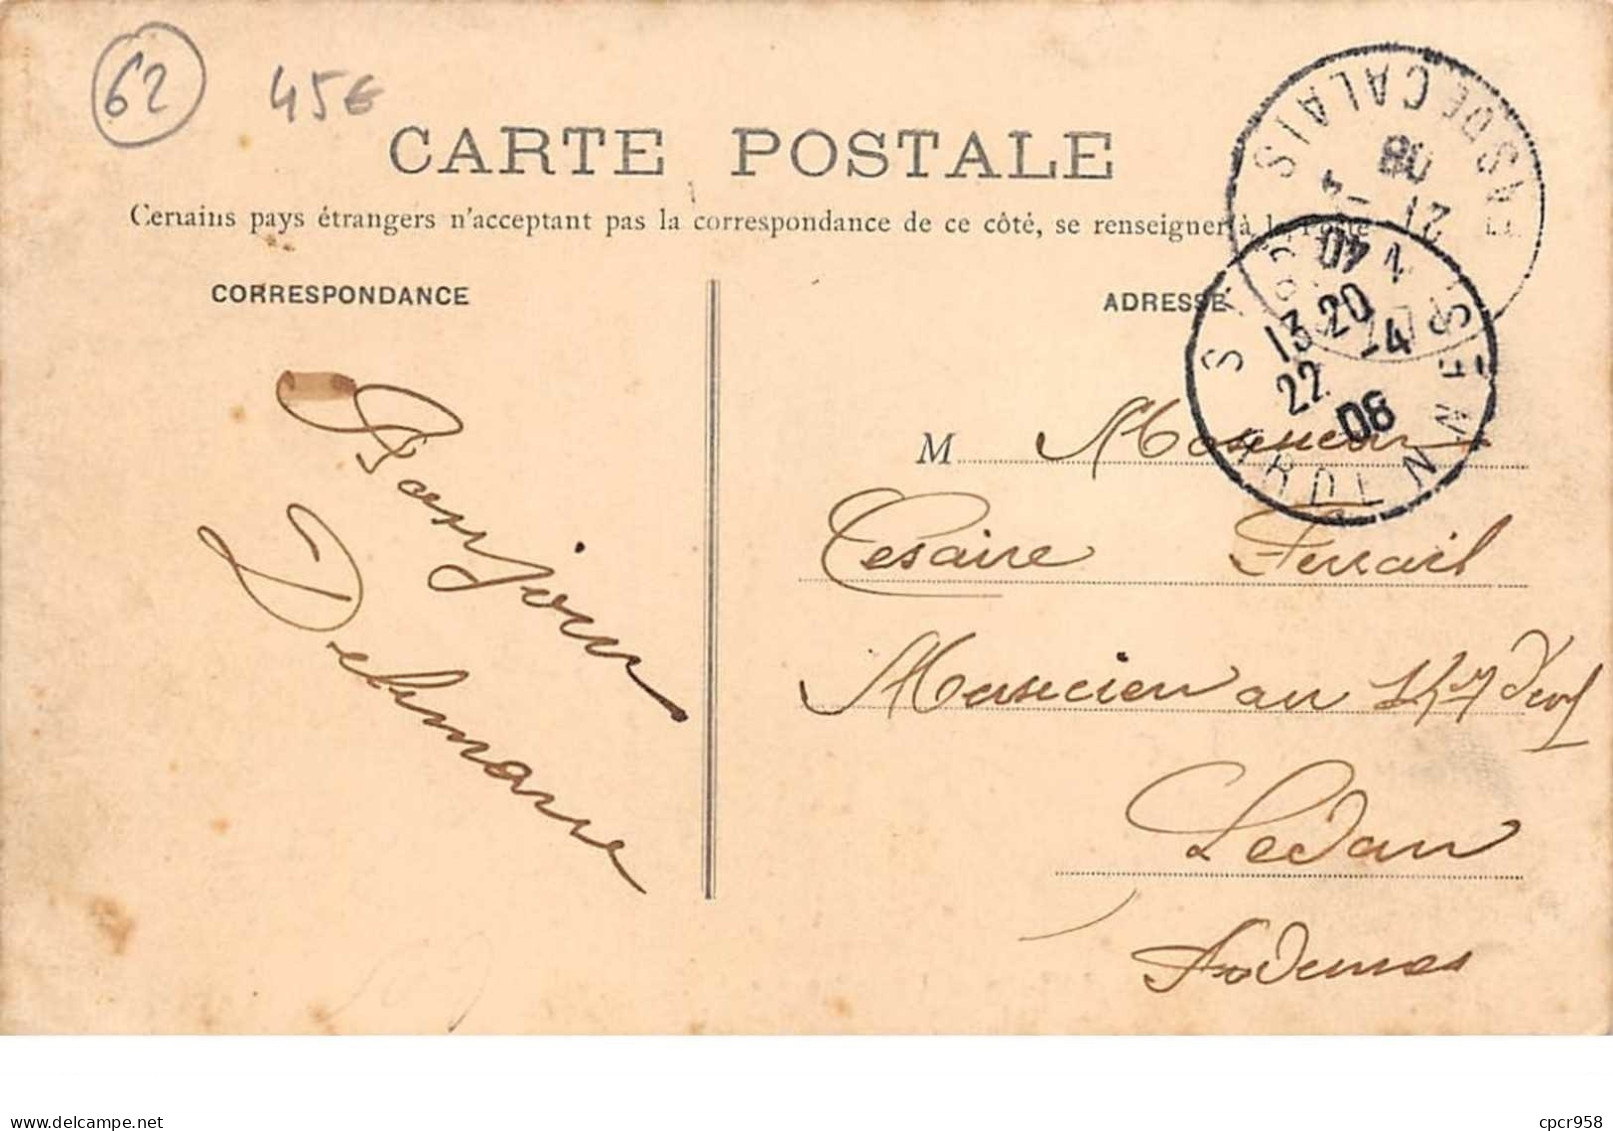 62
45€
CARTE POSTALE
Certains pays étrangers n'acceptant pas la correspondance de ce côté, se renseigner à la Poste
CORRESPONDANCE
ADRESSE
PAS DE CALAIS
21 -4
08
SEDAN
ARDENNES
13 20
22 -4
08
Bonjour
Delemarre
M Monsieur
Cesaire
Musicien au 147
Sedan
Ardennes
delcampe.net
cpcr958